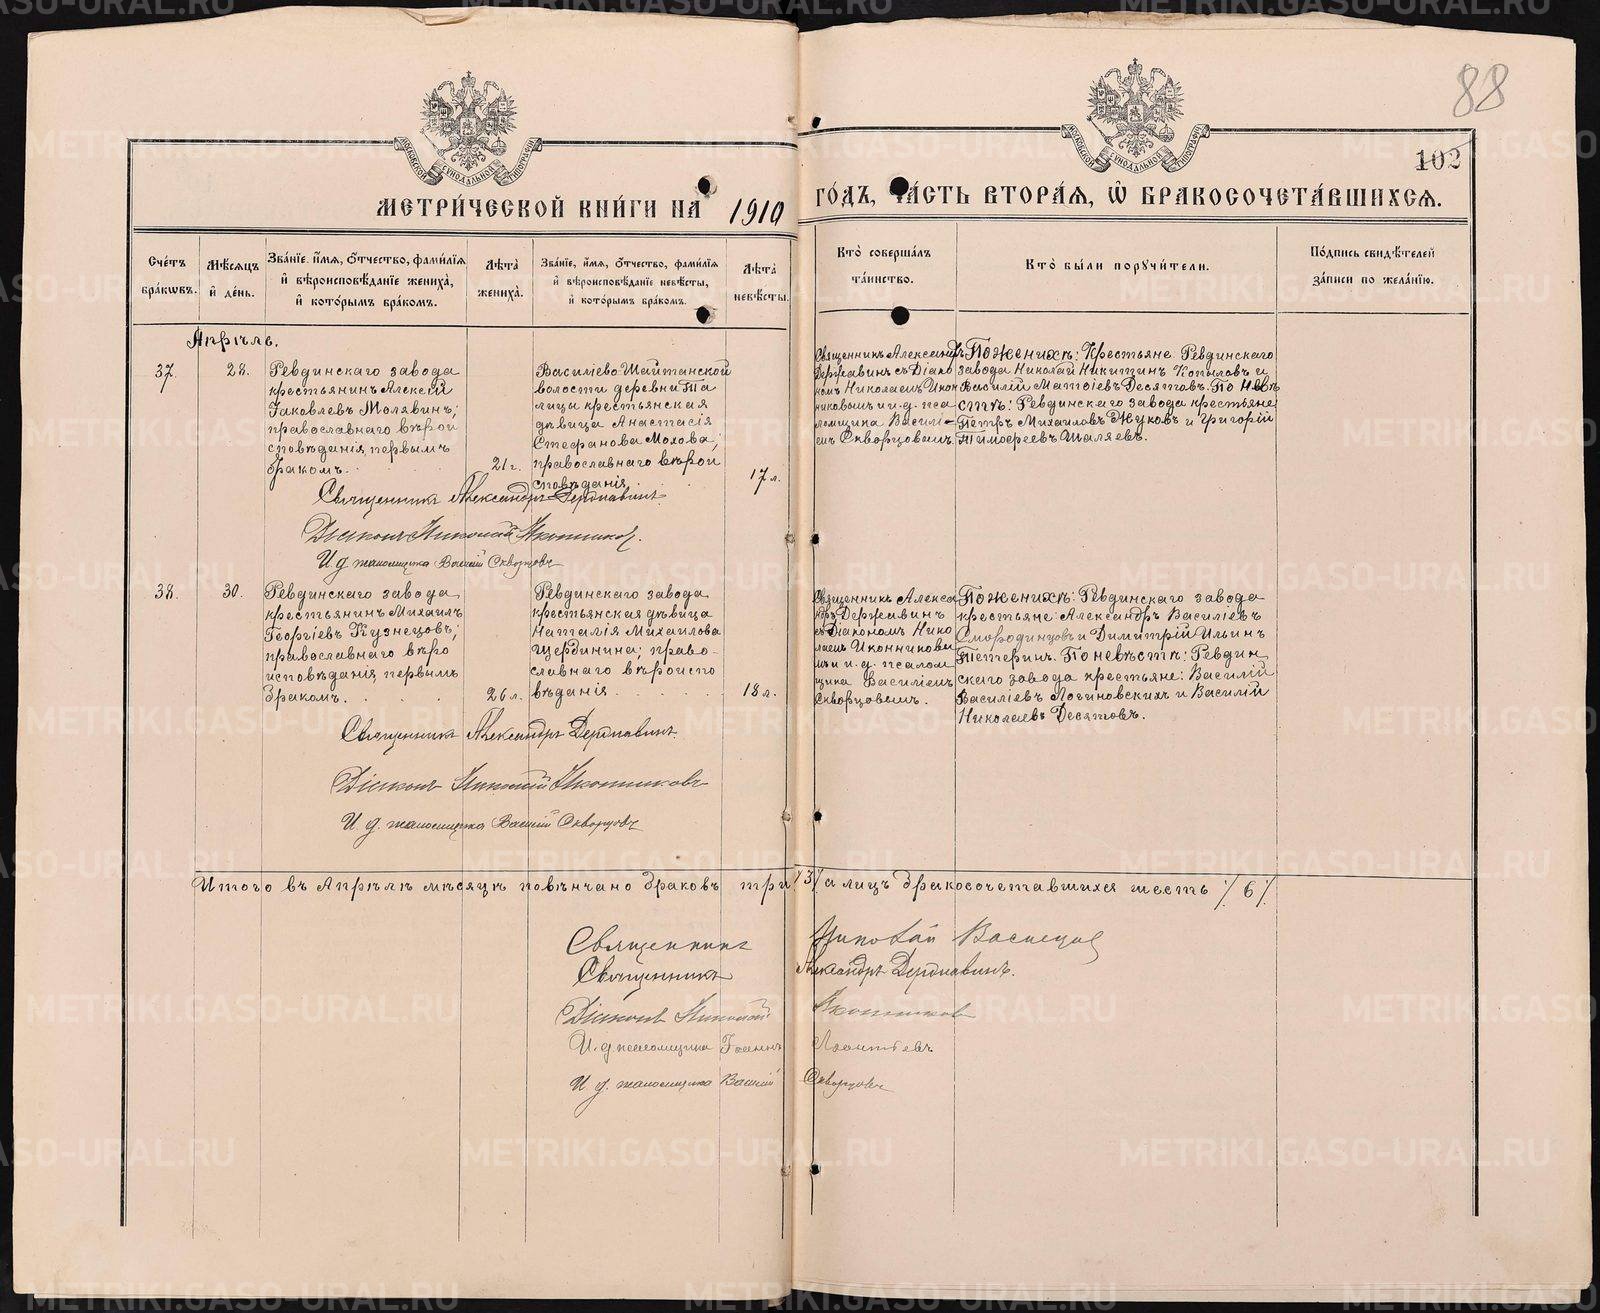 88
102
МЕТРИ́ЧЕСКОЙ КНИ́ГИ НА 1910 ГО́ДЪ, ЧА́СТЬ ВТОРА́Я, Ѡ҆ БРАКОСОЧЕТА́ВШИХСЯ.
Сче́тъ бра́кѡвъ.
Мѣ́сяцъ и҆ де́нь.
Зва́нїе, и҆́мя, ѻ҆́тчество, фами́лїя и҆ вѣроисповѣ́данїе жениха̀, и҆ кото́рымъ бра́комъ.
Лѣ́та жениха̀.
Зва́нїе, и҆́мя, ѻ҆́тчество, фами́лїя и҆ вѣроисповѣ́данїе невѣ́сты, и҆ кото́рымъ бра́комъ.
Лѣ́та невѣ́сты.
Кто̀ соверша́лъ та́инство.
Кто̀ бы́ли поручи́тели.
По́дпись свидѣ́телей за́писи по жела́нїю.
Апрѣль.
37.
28.
Ревдинскаго завода
крестьянинъ Алексѣй
Іаковлевъ Молявинъ,
православнаго вѣрои
сповѣданія, первымъ
бракомъ.
21 г.
Василіево-Шайтанской
волости деревни Та
лицы крестьянская
дѣвица Анастасія
Стефанова Мохова,
православнаго вѣрои
сповѣданія.
17 л.
Священникъ Александръ
Державинъ съ Діако
номъ Николаемъ Икон
никовымъ и и. д. пса
ломщика Василі-
емъ Скворцовымъ.
По женихѣ: Крестьяне Ревдинскаго
завода Николай Никитинъ Копыловъ и
Василій Матѳіевъ Десятовъ. По невѣ
стѣ: Ревдинскаго завода крестьяне
Петръ Михаиловъ Жуковъ и Григорій
Тимофеевъ Шаляевъ.
Священникъ Александръ Державинъ.
Діаконъ Николай Иконниковъ.
И. д. псаломщика Василій Скворцовъ
38.
30.
Ревдинскаго завода
крестьянинъ Михаилъ
Георгіевъ Кузнецовъ,
православнаго вѣро
исповѣданія, первымъ
бракомъ.
26 л.
Ревдинскаго завода
крестьянская дѣвица
Наталія Михаилова
Щербинина, право-
славнаго вѣроиспо
вѣданія
18 л.
Священникъ Алекса
ндръ Державинъ
съ Діакономъ Нико
лаемъ Иконниковы
мъ и и. д. псалом
щика Василіемъ
Скворцовымъ.
По женихѣ: Ревдинскаго завода
крестьяне Александръ Василіевъ
Смородинцовъ и Димитрій Ильинъ
Тетеринъ. По невѣстѣ: Ревдин
скаго завода крестьяне: Василій
Василіевъ Логиновскихъ и Василій
Николаевъ Десятовъ.
Священникъ Александръ Державинъ.
Діаконъ Николай Иконниковъ
И. д. псаломщика Василій Скворцовъ
Итого въ Апрѣлѣ мѣсяцѣ повѣнчано браковъ три /3/ а лицъ бракосочетавшихся шесть /6/.
Священникъ Николай Васнецов
Священникъ Александръ Державинъ.
Діаконъ Николай Иконников
И. д. псаломщика Іоаннъ Леонтьевъ
И д. псаломщика Василій Скворцовъ
METRIKI.GASO-URAL.RU